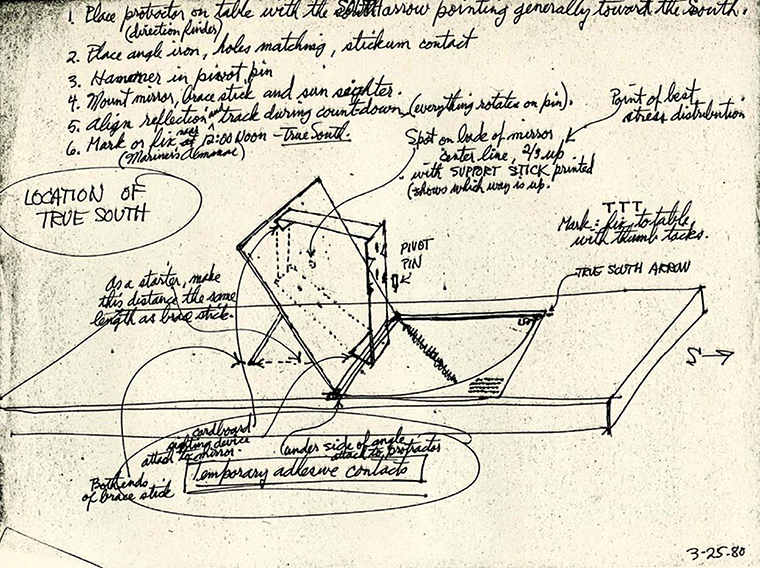 1. Place protractor on table with the South arrow pointing generally toward the South.
(direction finder)
2. Place angle iron, holes matching, stickum contact
3. Hammer in pivot pin
4. Mount mirror, brace stick and sun sighter.
5. Align reflection and track during countdown (everything rotates on pin).
6. Mark or fix near 12:00 Noon - True South.
(Mariner's Almanac)
Point of best
stress distribution
Spot on back of mirror
center line, 2/3 up
with SUPPORT STICK printed
(shows which way is up.
LOCATION OF
TRUE SOUTH
T T T
Mark: fix to table
with thumb tacks.
PIVOT
PIN
TRUE SOUTH ARROW
As a starter, make
this distance the same
length as brace stick.
S
cardboard
sighting device
attach to mirror.
(under side of angle
attach to protractor
Temporary adhesive contacts
Both ends
of brace stick
3-25-80